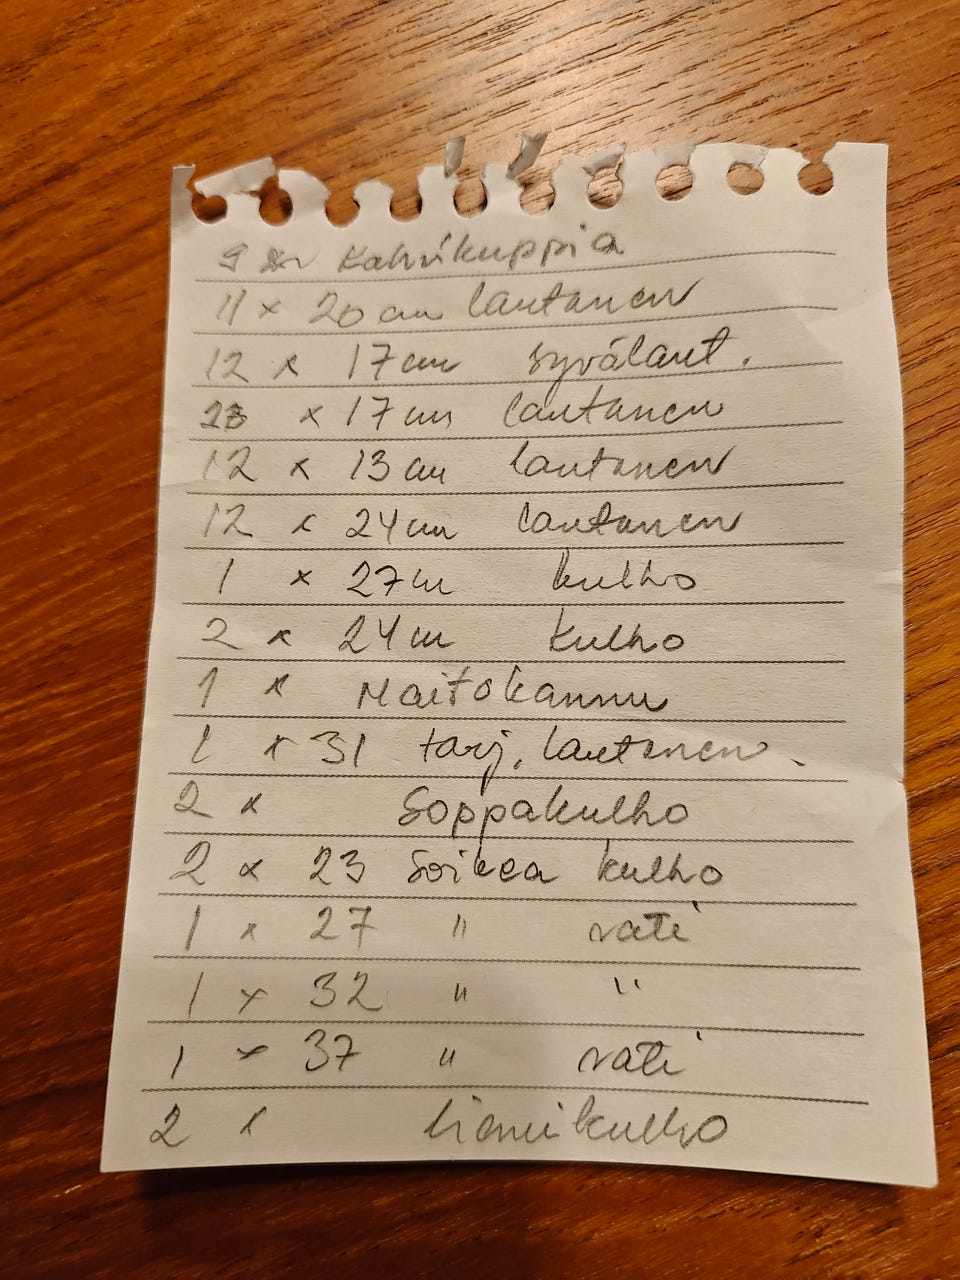 9 Kahvikuppia
11 x 20 cm lautanen
12 x 17 cm syvälaut.
23 x 17 cm lautanen
12 x 13 cm lautanen
12 x 24 cm lautanen
1 x 27 cm kulho
2 x 24 cm kulho
1 x Maitokannu
1 x 31 tarj. lautanen
2 x Soppakulho
2 x 23 Soikea kulho
1 x 27 " vati
1 x 32 " "
1 x 37 " vati
2 x liemikulho